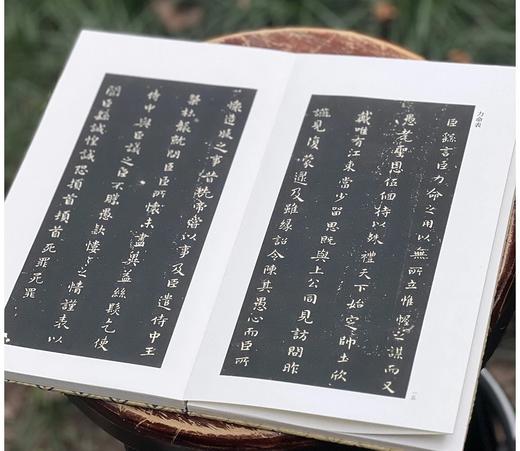 力命表
臣繇言臣力命之用以無所立惟幄之謀而又
愚老聖恩低佪待以殊禮天下始定師土欣
戴唯有江東當少留思既與上公同見訪問昨
見復蒙逮及雖緣詔令陳其愚心而臣所
懷造膝之事昔先帝嘗以事及臣遣侍中王
粲杜襲就問臣臣所懷未盡奚益絲髮乞使
侍中與臣議之臣不勝愚款慺々之情謹表以
聞臣繇誠惶誠恐頓首頓首死罪死罪
一五